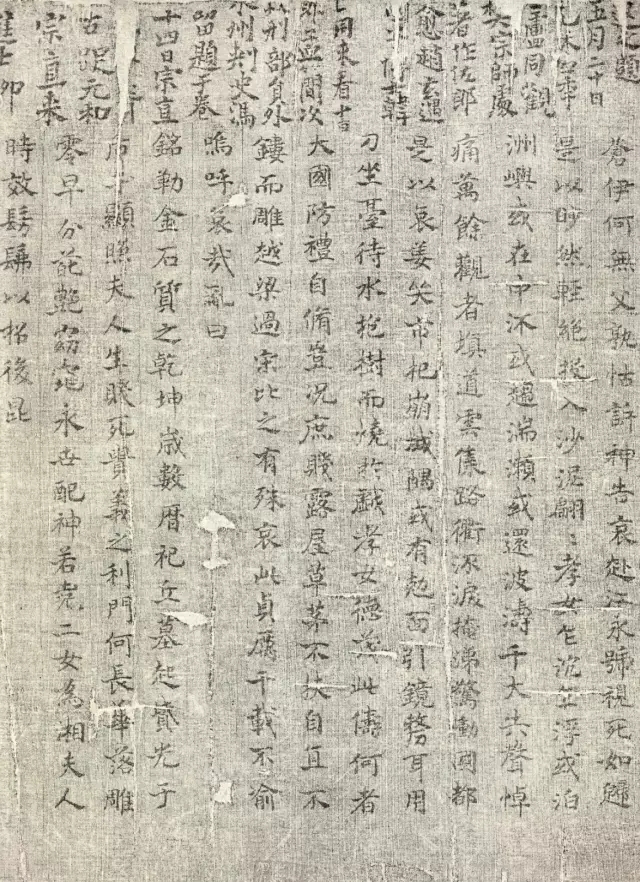 五月二十日
盧同觀
樊宗師處
著作佐郎
愈趙玄遇
韓
刑部員外
州刺史馮
留題于卷
十四日宗直
元和
宗直來
蒼伊何無父孰怙訴神告哀赴江永號視死如歸
是以眇然輕絕投入沙泥翩〻孝女乍沉乍浮或泊
洲嶼或在中沠或趨湍瀨或還波濤千夫失聲悼
痛萬餘觀者填道雲集路衢泣淚掩涕驚動國都
是以哀姜哭市杞崩城隅或有剋面引鏡剺耳用
刀坐臺待水抱樹而燒於戲孝女德茂此儔何者
大國防禮自脩豈況庶賤露屋草茅不扶自直不
鏤而雕越梁過宋比之有殊哀此貞厲千載不渝
嗚呼哀哉亂曰
銘勒金石質之乾坤歲數曆祀丘墓起墳光于
后土顯照夫人生賤死貴義之利門何長華落雕
零早分葩艷窈窕永世配神若堯二女為湘夫人
時效髣髴以招後昆